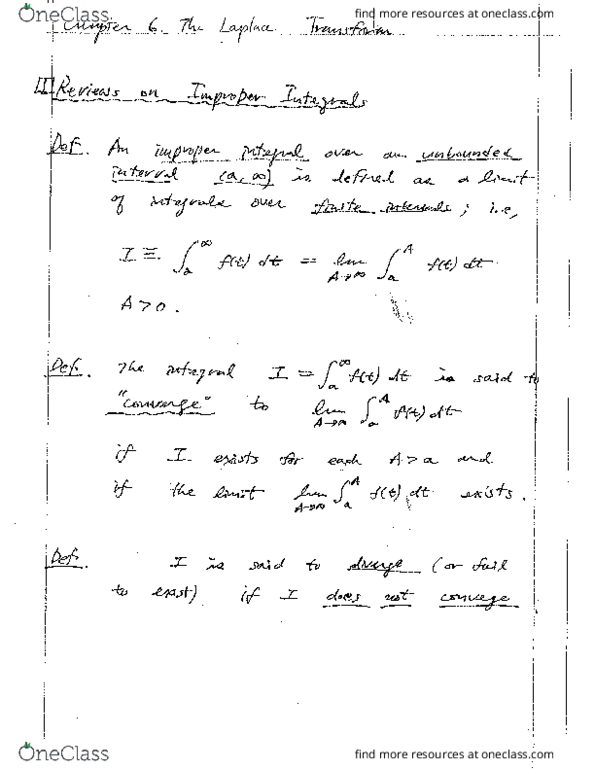 OneClass
find more resources at oneclass.com
Chapter 6. The Laplace Transform
[I] Reviews on Improper Integrals
Def. An improper integral over an unbounded
interval (a, ∞) is defined as a limit
of integrals over finite intervals; i.e,
I ≡ ∫_a^∞ f(t) dt = lim_{A→∞} ∫_a^A f(t) dt.
A > 0.
Def. The integral I = ∫_a^∞ f(t) dt is said to
"converge" to lim_{A→∞} ∫_a^A f(t) dt
if I exists for each A > a and
if the limit lim_{A→∞} ∫_a^A f(t) dt exists.
Def. I is said to diverge (or fail
to exist) if I does not converge
OneClass
find more resources at oneclass.com